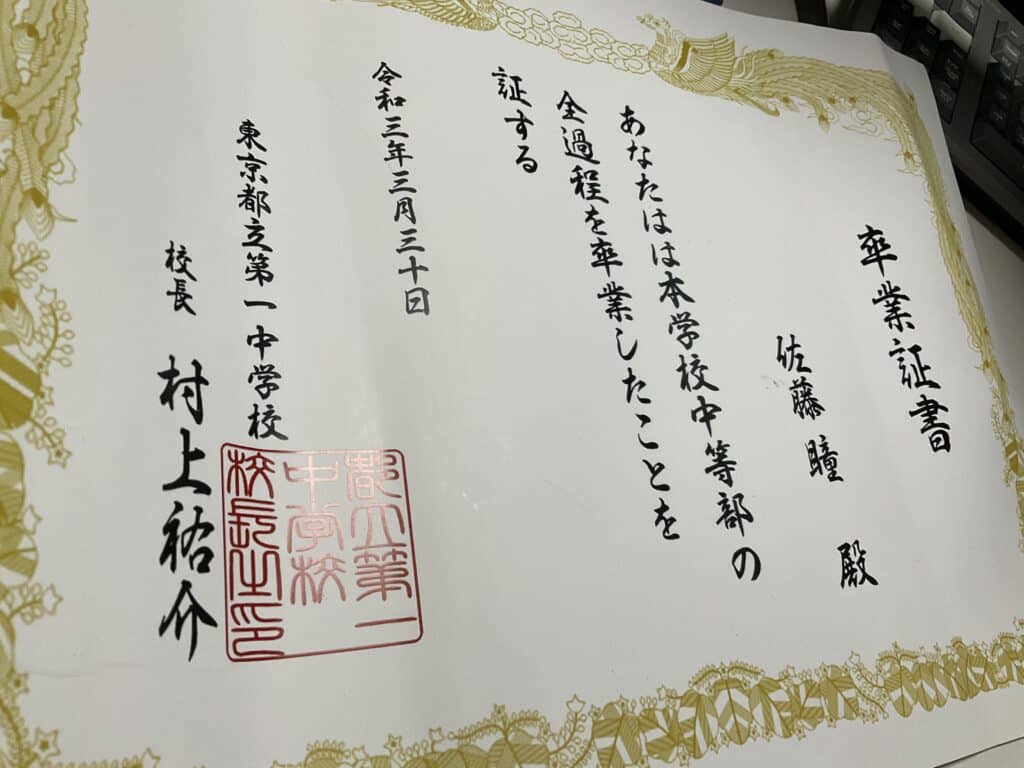 卒業証書
佐藤 瞳 殿
あなたはは本学校中等部の
全過程を卒業したことを
証する
令和三年三月三十日
東京都立第一中学校
校長 村上祐介
都立第一
中学校
校長之印